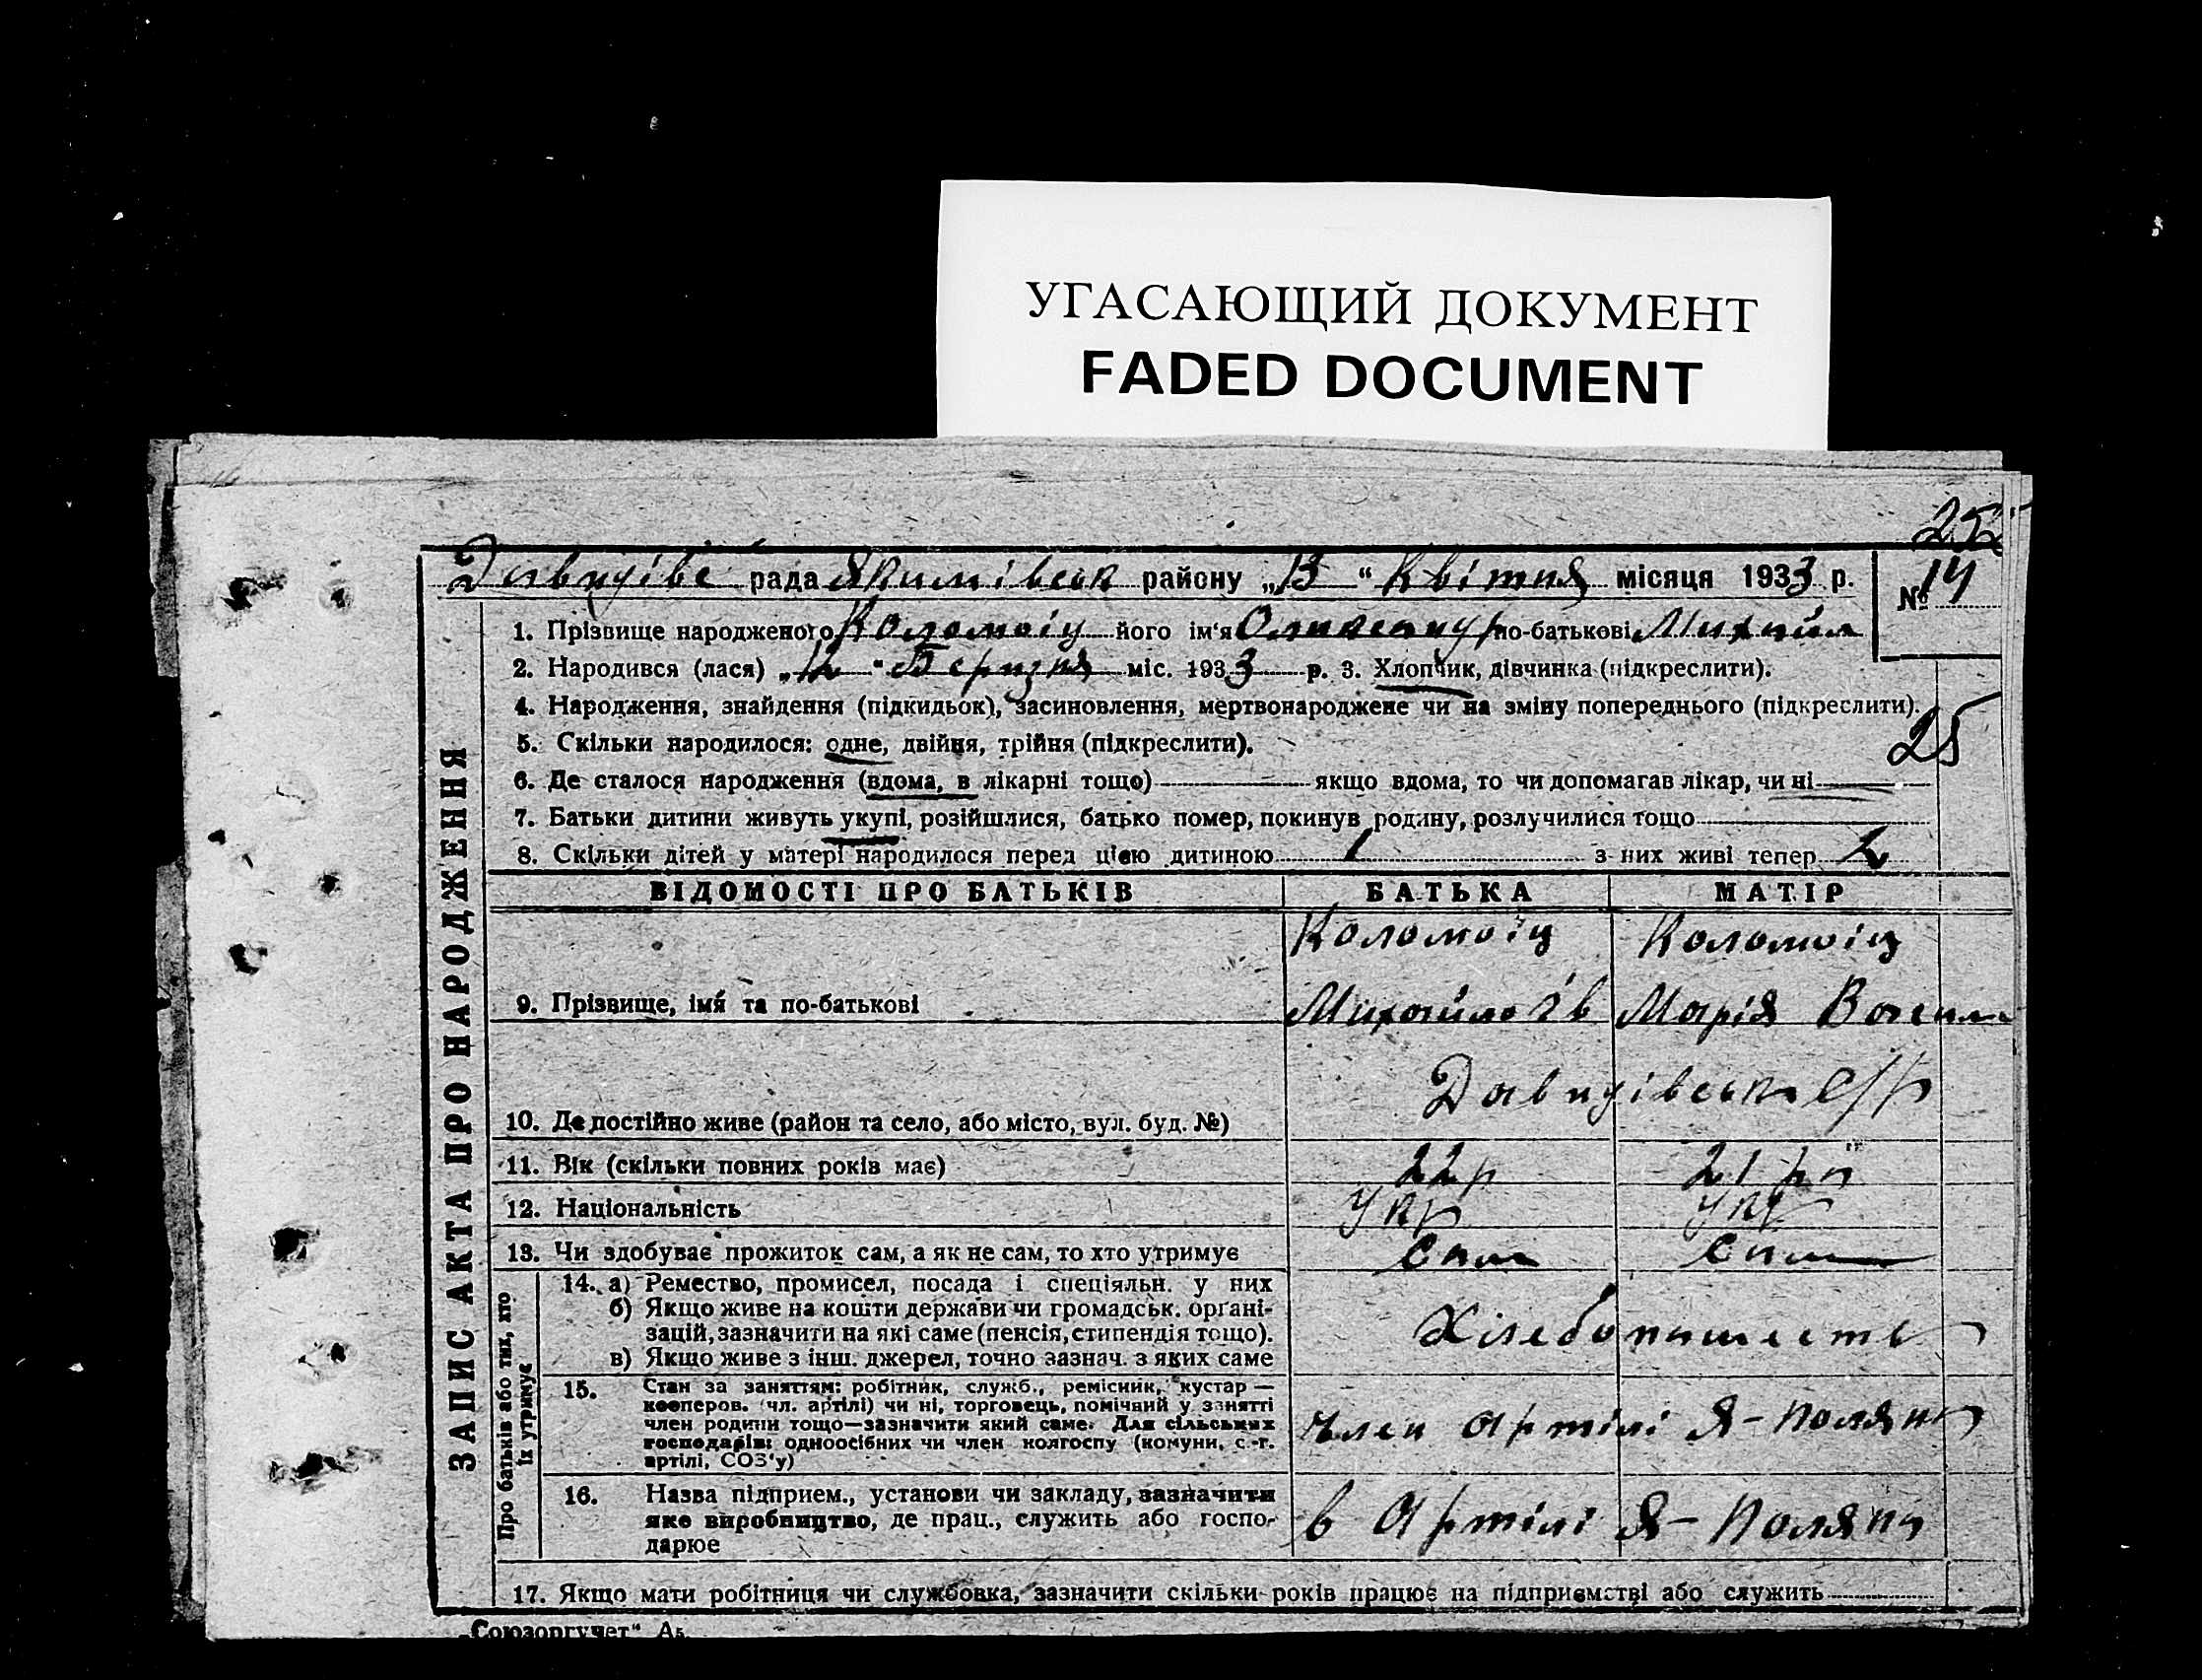 УГАСАЮЩИЙ ДОКУМЕНТ
FADED DOCUMENT
252
Давидівс рада Якимівськ району „13“ Квітня місяця 1933 р. № 14
1. Прізвище народженого Коломоїц його ім'я Олександр по-батькові Михайл
2. Народився (лася) „12“ Березня міс. 1933 р. 3. Хлопчик, дівчинка (підкреслити).
4. Народження, знайдення (підкидьок), засиновлення, мертвонароджене чи на зміну попереднього (підкреслити).
25
5. Скільки народилося: одне, двійня, трійня (підкреслити).
6. Де сталося народження (вдома, в лікарні тощо) якщо вдома, то чи допомагав лікар, чи ні
7. Батьки дитини живуть укупі, розійшлися, батько помер, покинув родину, розлучилися тощо
8. Скільки дітей у матері народилося перед цією дитиною 1 з них живі тепер 2
ЗАПИС АКТА ПРО НАРОДЖЕННЯ
ВІДОМОСТІ ПРО БАТЬКІВ БАТЬКА МАТІР
Коломоїц Коломоїц
9. Прізвище, імя та по-батькові Михайло Марія Васил
Давидівська с/р
10. Де постійно живе (район та село, або місто, вул. буд. №)
11. Вік (скільки повних років має) 22 р 21 р
12. Національність Укр Укр
13. Чи здобуває прожиток сам, а як не сам, то хто утримує Сам Сам
Про батьків або тих, хто їх утримує
14. а) Ремество, промисел, посада і спеціяльн. у них
б) Якщо живе на кошти держави чи громадськ. органі-
зацій, зазначити на які саме (пенсія, стипендія тощо).
в) Якщо живе з інш. джерел, точно зазнач. з яких саме
Хлебопашеств
15. Стан за заняттям: робітник, служб., ремісник, кустар —
кооперов. (чл. артілі) чи ні, торговець, помічний у занятті
член родини тощо—зазначити який саме. Для сільських
господарів: одноосібних чи член колгоспу (комуни, с.-г.
артілі, СОЗ'у)
член Артілі Я-Поляна
16. Назва підприєм., установи чи закладу, зазначити
яке виробництво, де прац., служить або госпо-
дарює
в Артілі Я-Поляна
17. Якщо мати робітниця чи службовка, зазначити скільки років працює на підприємстві або служить
„Союзоргучет“ А5.